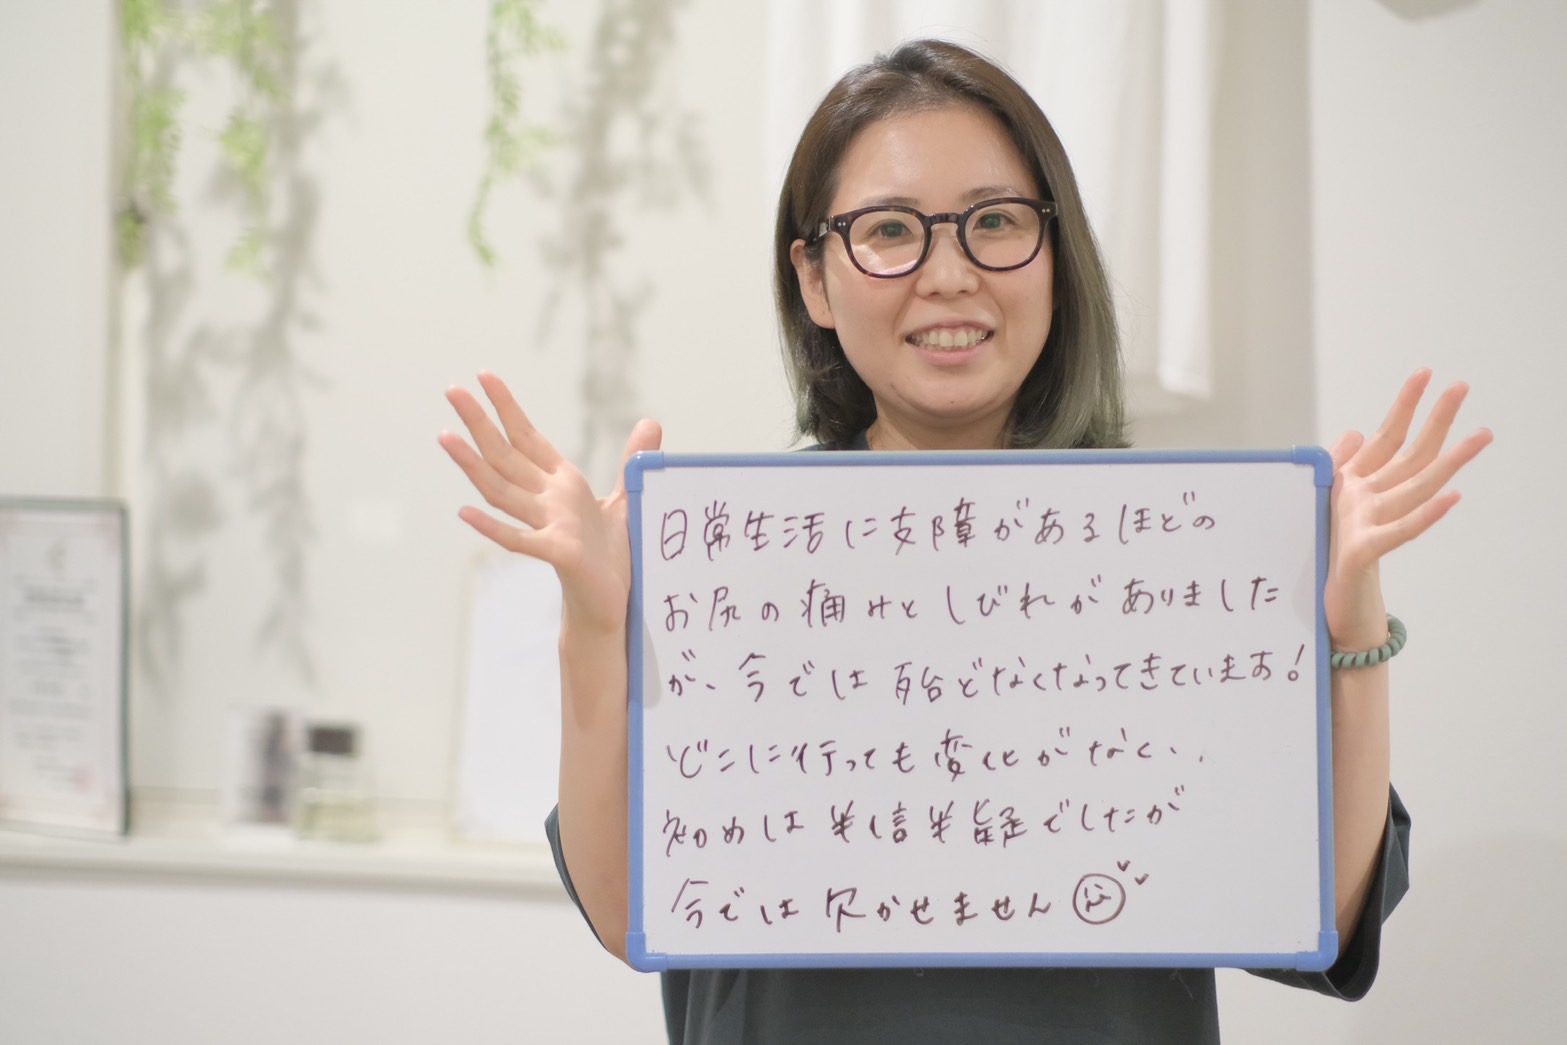 日常生活に支障があるほどの
お尻の痛みとしびれがありました
が、今では殆どなくなってきています!
どこに行っても変化がなく、、
初めは半信半疑でしたが
今では欠かせません